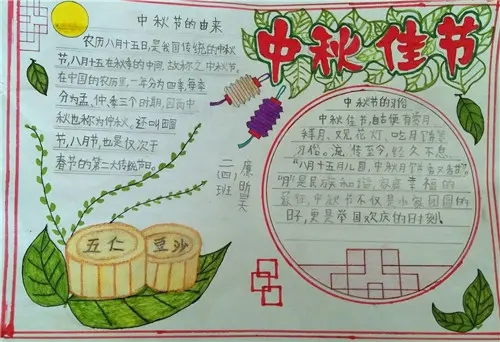 中秋佳节
中秋节的由来
农历八月十五日,是我国传统的中秋
节,八月十五在秋季的中间,故称之中秋节。
在中国的农历里,一年分为四季,每季
分为孟、仲、季三个时期,因而中
秋也称为仲秋,还叫团圆
节,八月节,也是仅次于
春节的第二大传统节日。
二(四)班
廖昕昊
五仁
豆沙
中秋节的习俗
中秋佳节,自古便有赏月
拜月、观花灯、吃月饼等
习俗。流传至今,经久不息。
“八月十五月儿圆,中秋月饼香又甜”。
“月”是民族和谐,家庭幸福的
象征,中秋节不仅是小家团圆的
日子,更是举国欢庆的日时刻。